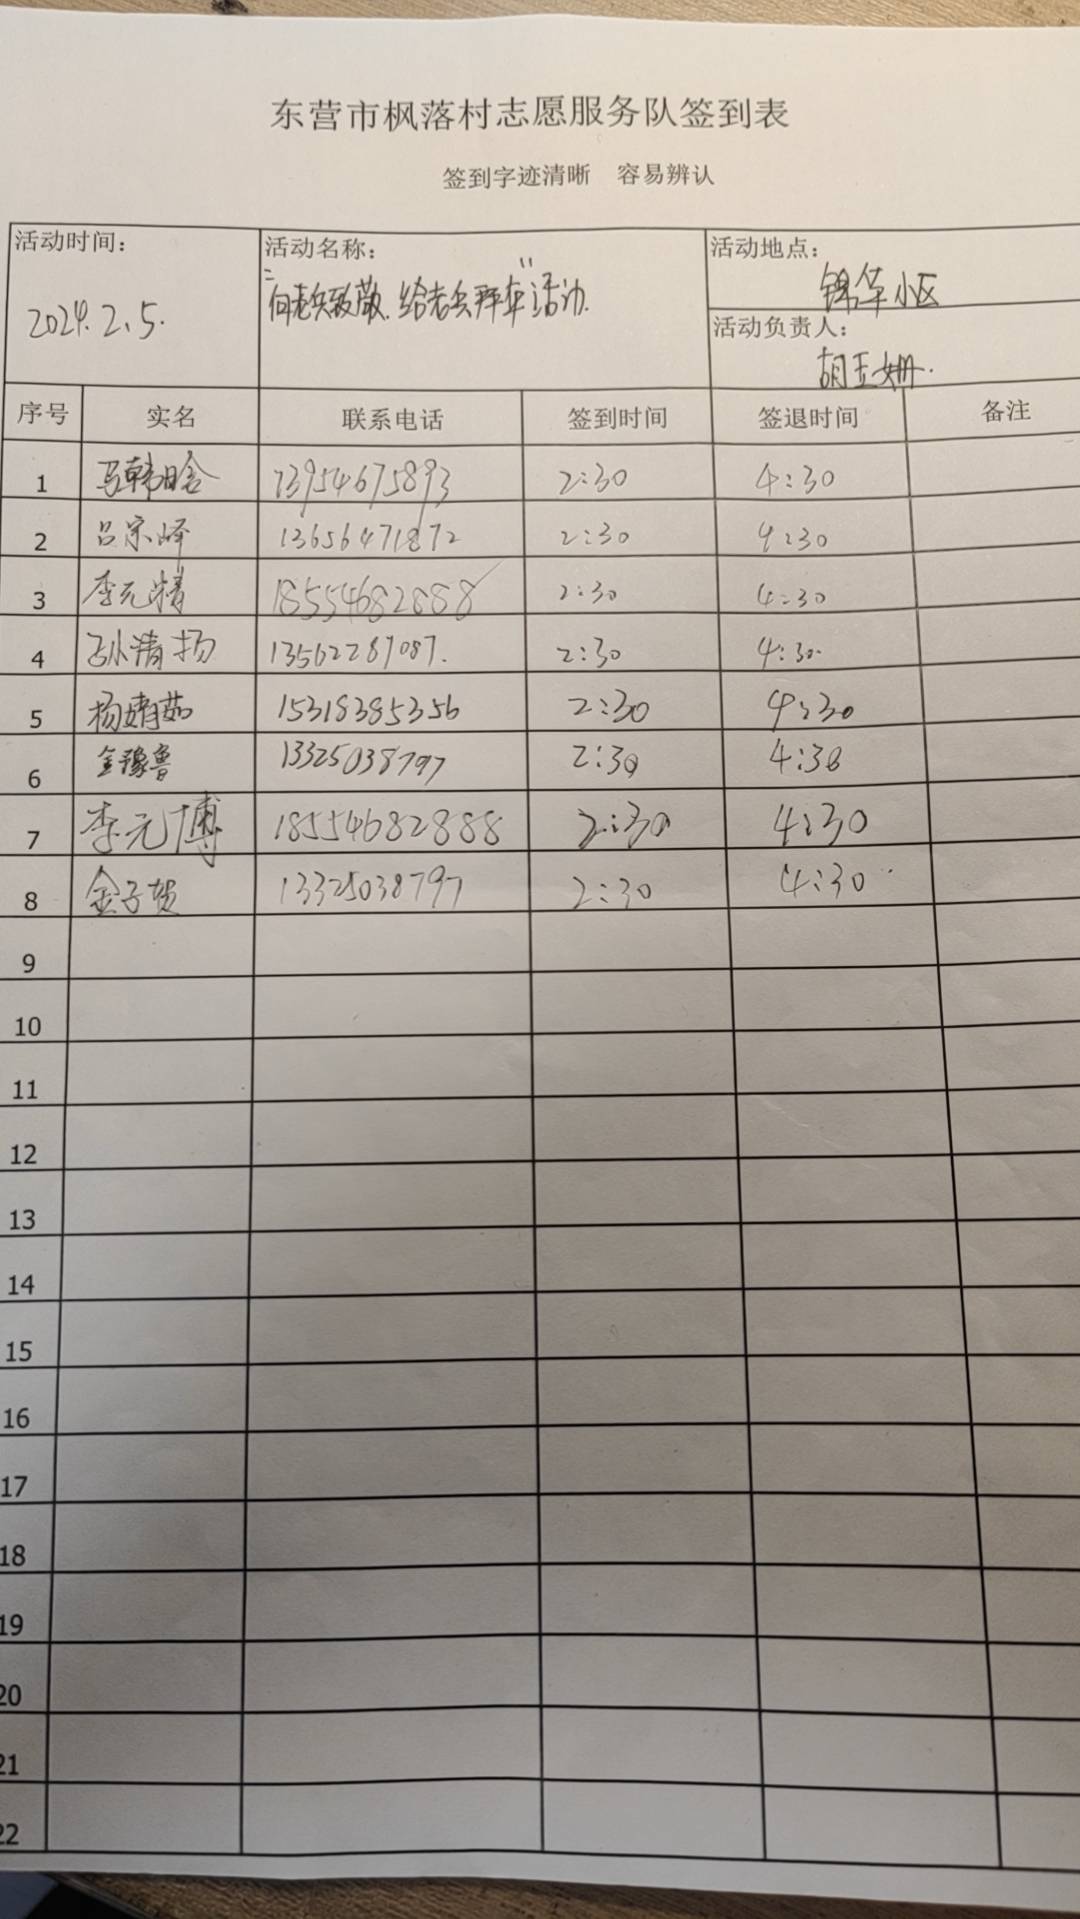 东营市枫落村志愿服务队签到表
签到字迹清晰 容易辨认
活动时间：
2024.2.5.
活动名称：
"向老兵致敬.给老兵拜年"活动.
活动地点：
锦华小区
活动负责人：
胡玉姗.
序号 实名 联系电话 签到时间 签退时间 备注
1 马韩晗 13954675893 2:30 4:30
2 吕宗峄 13656471872 2:30 4:30
3 李元精 18554682888 2:30 4:30
4 孙清扬 13562287087. 2:30 4:30.
5 杨婧茹 15318385356 2:30 4:30
6 金豫鲁 13325038797 2:30 4:30
7 李元博 18554682888 2:30 4:30
8 金子贺 13325038797 2:30 4:30
9
10
11
12
13
14
15
16
17
18
19
20
21
22